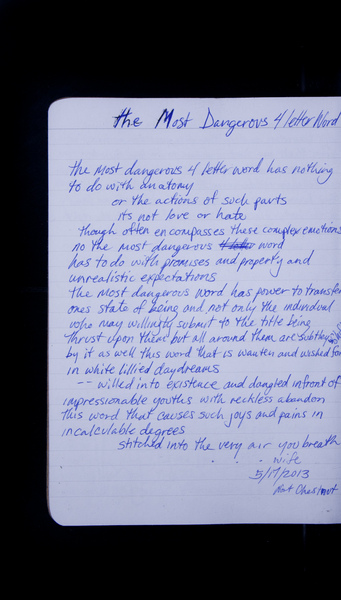 the Most Dangerous 4 letter Word
the most dangerous 4 letter word has nothing
to do with anatomy
or the actions of such parts
its not love or hate
though often encompasses these complex emotions
no the most dangerous 4 letter word
has to do with promises and property and
unrealistic expectations
the most dangerous word has power to transfer
ones state of being and not only the individual
who may willingly submit to the title being
thrust upon them but all around them are subtly
by it as well this word that is wanten and wished for
in white lillied daydreams
-- willed into existence and dangled infront of
impressionable youths with reckless abandon
this word that causes such joys and pains in
incalculable degrees
stitched into the very air you breath
. . . wife
5/17/2013
Chestnut